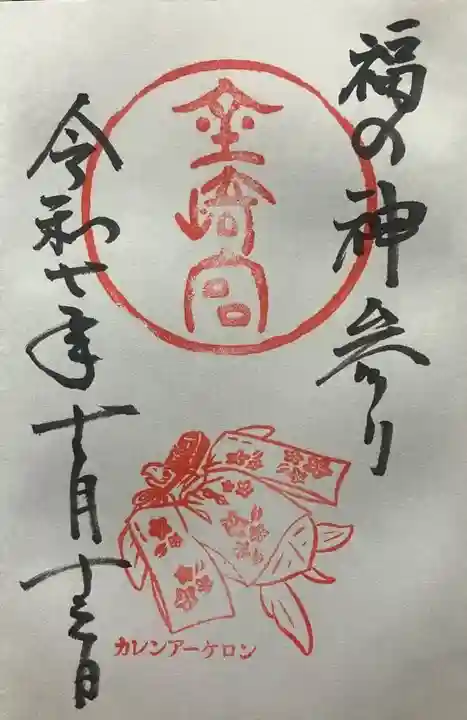 福の神参り
金崎宮
令和七年十二月十三日
カレンアーケロン